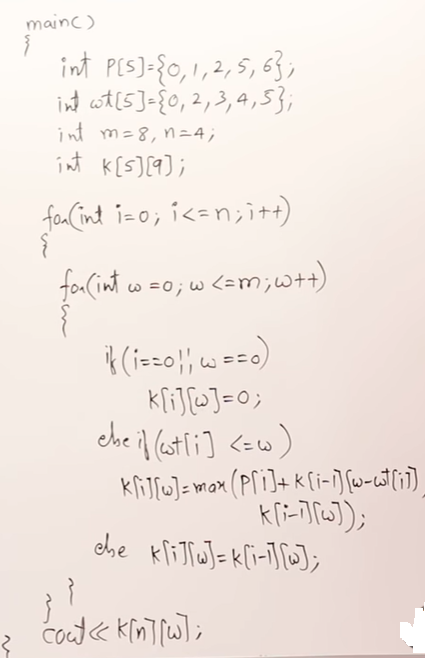 main()
{
int P[5]={0,1,2,5,6};
int wt[5]={0,2,3,4,5};
int m=8, n=4;
int k[5][9];
for(int i=0; i<=n; i++)
{
for(int w=0; w<=m; w++)
{
if(i==0||w==0)
k[i][w]=0;
else if(wt[i] <=w)
k[i][w]=max(P[i]+k[i-1][w-wt[i]],
k[i-1][w]);
else k[i][w]=k[i-1][w];
}
}
cout<< k[n][w];
}